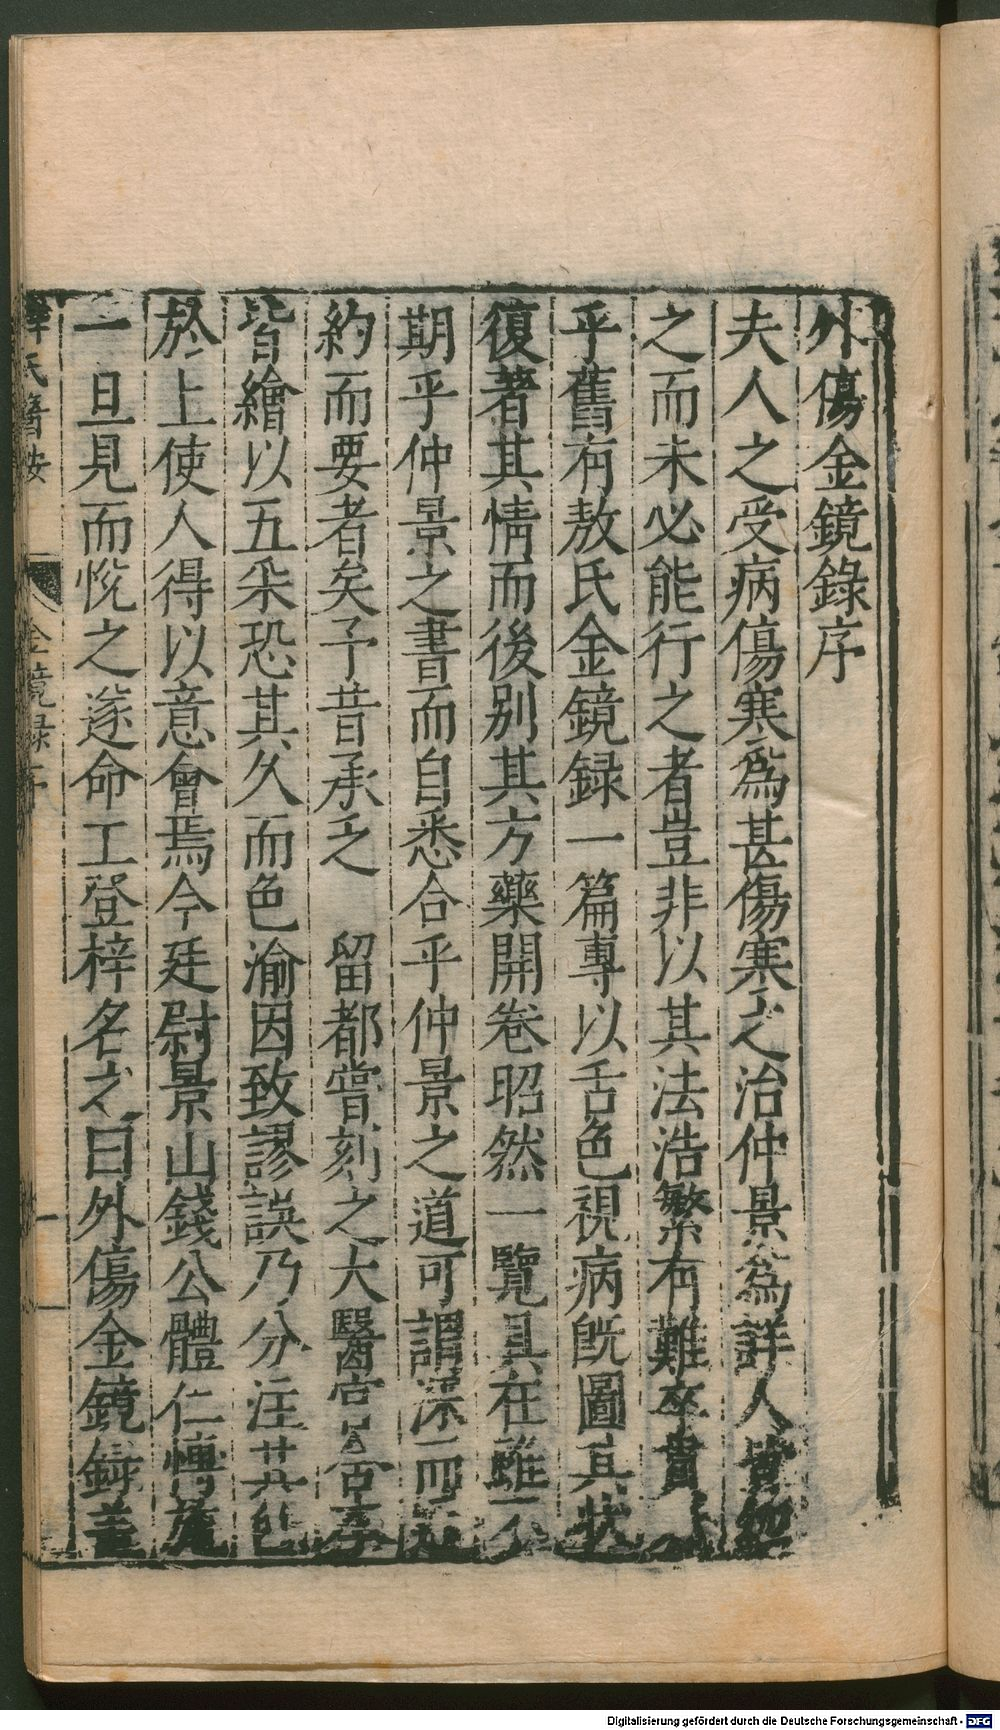 外傷金鏡錄序
夫人之受病傷寒爲甚傷寒之治仲景爲詳人皆知
之而未必能行之者豈非以其法浩繁有難卒貫
乎舊有敖氏金鏡録一篇專以舌色視病旣圖其狀
復著其情而後别其方藥開卷昭然一覽具在雖不
期乎仲景之書而自悉合乎仲景之道可謂深而
約而要者矣予昔承乏　留都嘗刻之太醫官舍本
皆繪以五采恐其久而色渝因致謬誤乃分注其色
於上使人得以意會焉今廷尉景山錢公體仁博施
一旦見而悅之遂命工登梓名之曰外傷金鏡録蓋
薛氏醫按
金鏡録序
一
Digitalisierung gefördert durch die Deutsche Forschungsgemeinschaft - DFG